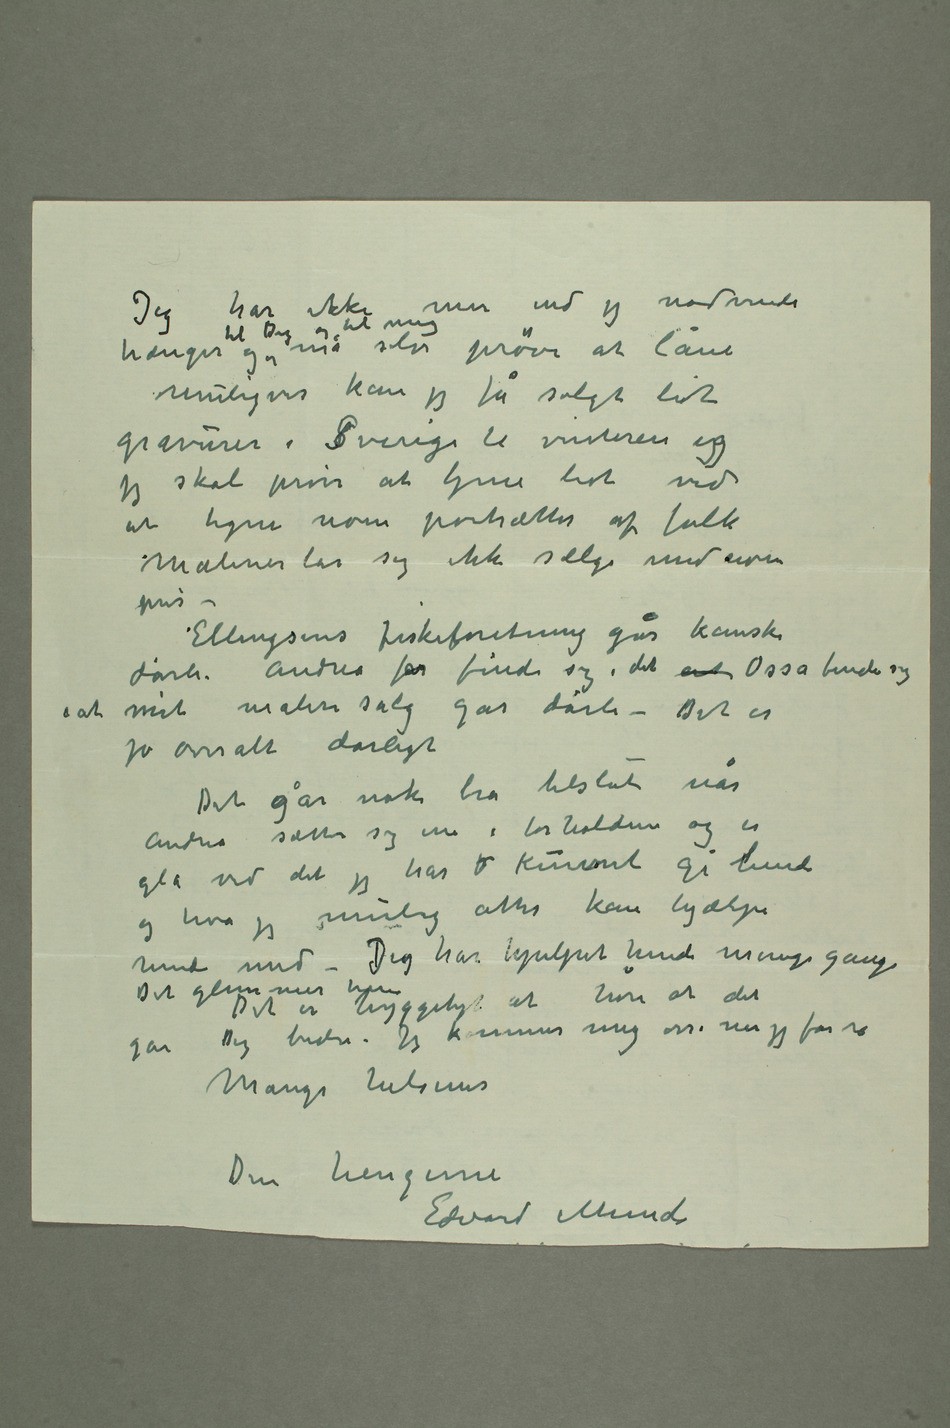 Jeg har ikke mer end jeg nødvendi
trænger til Dig og til mig og må selv prøve at låne
muligvis kan jeg få solgt lidt
gravurer i Sverige til vinteren og
jeg skal prøve at tjene lidt ved
at tegne noen portrætter af folk
Malerier lar sig ikke sælge med noen
pris –
Ellingsens fiskeforetning går kanske
dårli. Andrea får finde sig i det Ossa finde sig
i at mit maleri salg går dårli – Det er
jo overalt dårligt
Det går nok bra tilslut når
Andrea sætter sig inn i forholdene og er
gla ved det jeg har kunnet gi hende
og hva jeg mulig atter kan hjælpe
hende med – Jeg har hjulpet hende mange gange
Det glemmer hun
Det er hyggeligt at høre at det
går Dig bedre. Jeg kommer mig osså når jeg får ro
Mange hilsener
Din hengivne
Edvard Munch